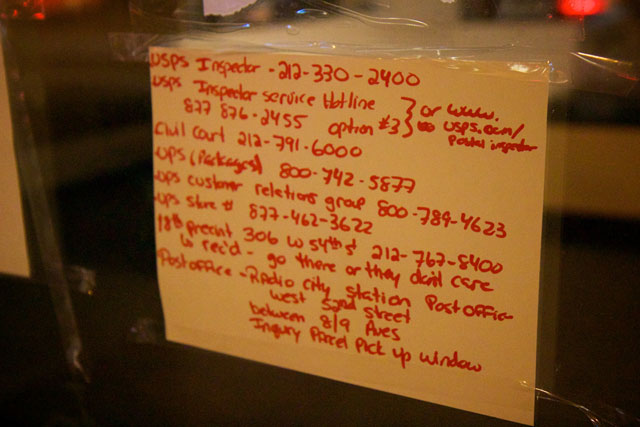 USPS Inspector - 212-330-2400
USPS Inspector service Hotline
877 876-2455 option #3 } or www.
usps.com/
postal inspector
Civil Court 212-791-6000
UPS (Packages) 800-742-5877
UPS customer relations group 800-789-4623
UPS Store # 877-462-3622
18th precint 306 W 54th St 212-767-8400
rec'd - go there or they don't care
Post office - Radio City Station Post Office
West 52nd Street
between 8/9 Aves
Inqury Parcel Pick up window